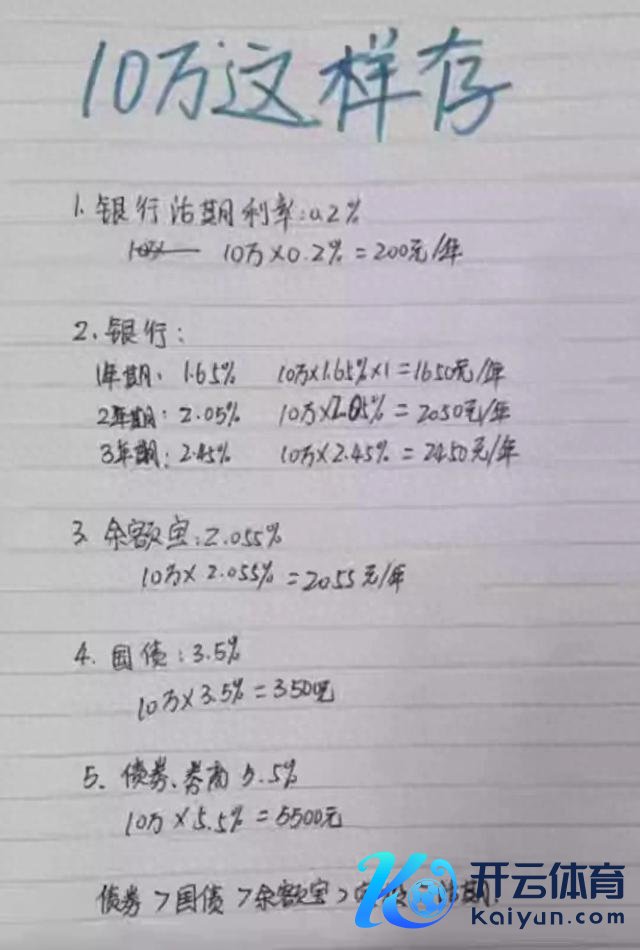 10万这样存
1. 银行活期利率:0.2%
10万×0.2%=200元/年
2. 银行:
1年期: 1.65% 10万×1.65%×1=1650元/年
2年期: 2.05% 10万×2.05%=2050元/年
3年期: 2.45% 10万×2.45%=2450元/年
3. 余额宝:2.055%
10万×2.055%=2055元/年
4. 国债:3.5%
10万×3.5%=3500元
5. 债券、券商5.5%
10万×5.5%=5500元
债券>国债>余额宝> 活期.
开云体育
kaiyun.com